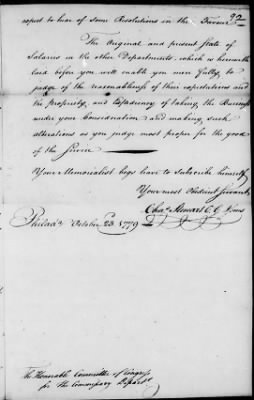 92
expect to hear of some Resolutions in their Favour
The Original and present State of
Salaries in the other Departments, which is herewith
laid before you will enable you more fully, to
judge of the reasonableness of their expectations and
the propriety, and expediency of taking the Business
under your Consideration and making such
alterations as you judge most proper for the good
of the Service
Your Memorialist begs leave to Subscribe himself
Your most Obedient Servant
Chas. Stewart C. G. Issues
Philada. October 23 1779
The Honorable Committee of Congress
for the Commissary Departt.